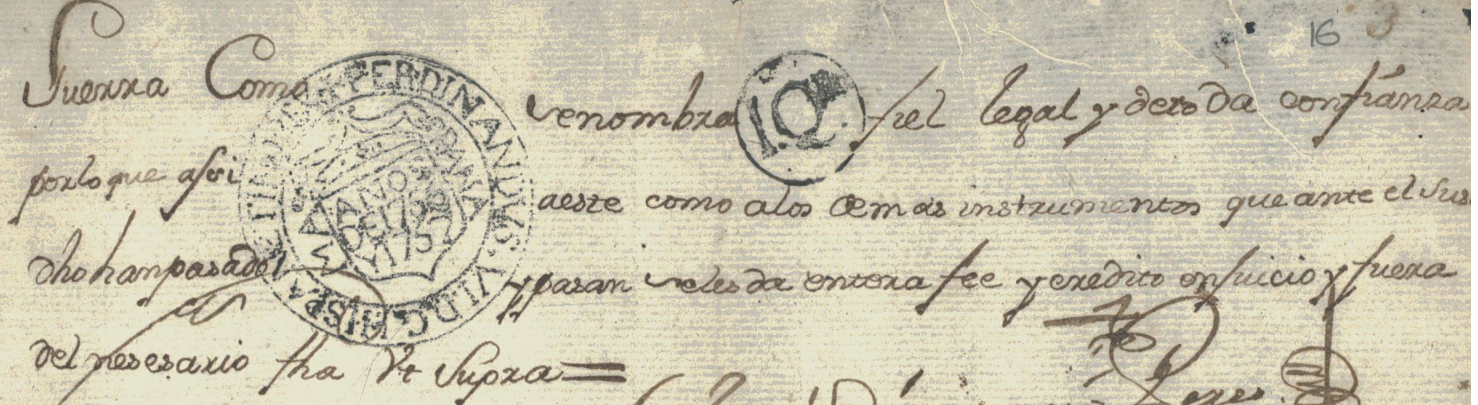 16
Suerra Como se nombra fiel legal y detoda confianza
porloque assi aeste como alos demas instrumentos que ante el sus
dho han pasado y pasan seles da entera fee y credito en juicio y fuera
del nesesario fha Vt Supra =
FERDINANDUS. VI. D. G. HISPA
PARA
AÑOS
DE 1756
Y 1757
1. Q.